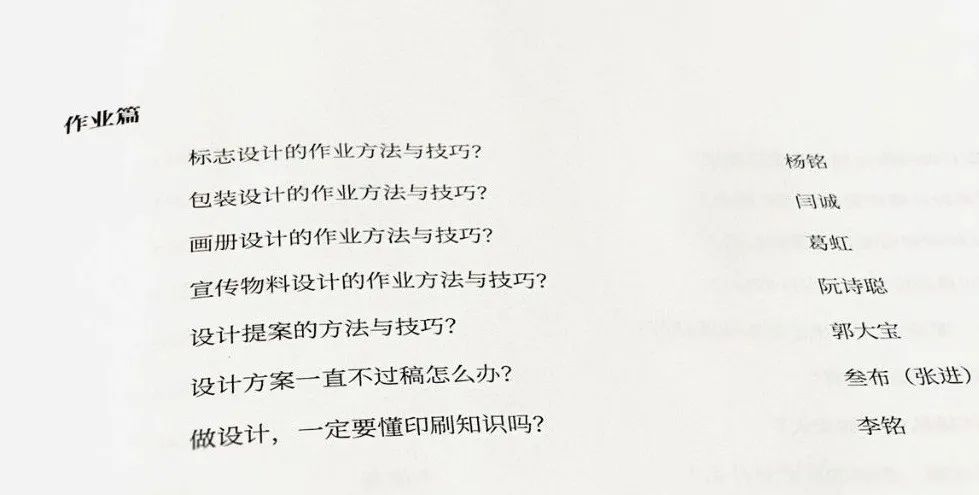 作业篇
标志设计的作业方法与技巧? 杨铭
包装设计的作业方法与技巧? 闫诚
画册设计的作业方法与技巧? 葛虹
宣传物料设计的作业方法与技巧? 阮诗聪
设计提案的方法与技巧? 郭大宝
设计方案一直不过稿怎么办? 叁布（张进）
做设计，一定要懂印刷知识吗? 李铭